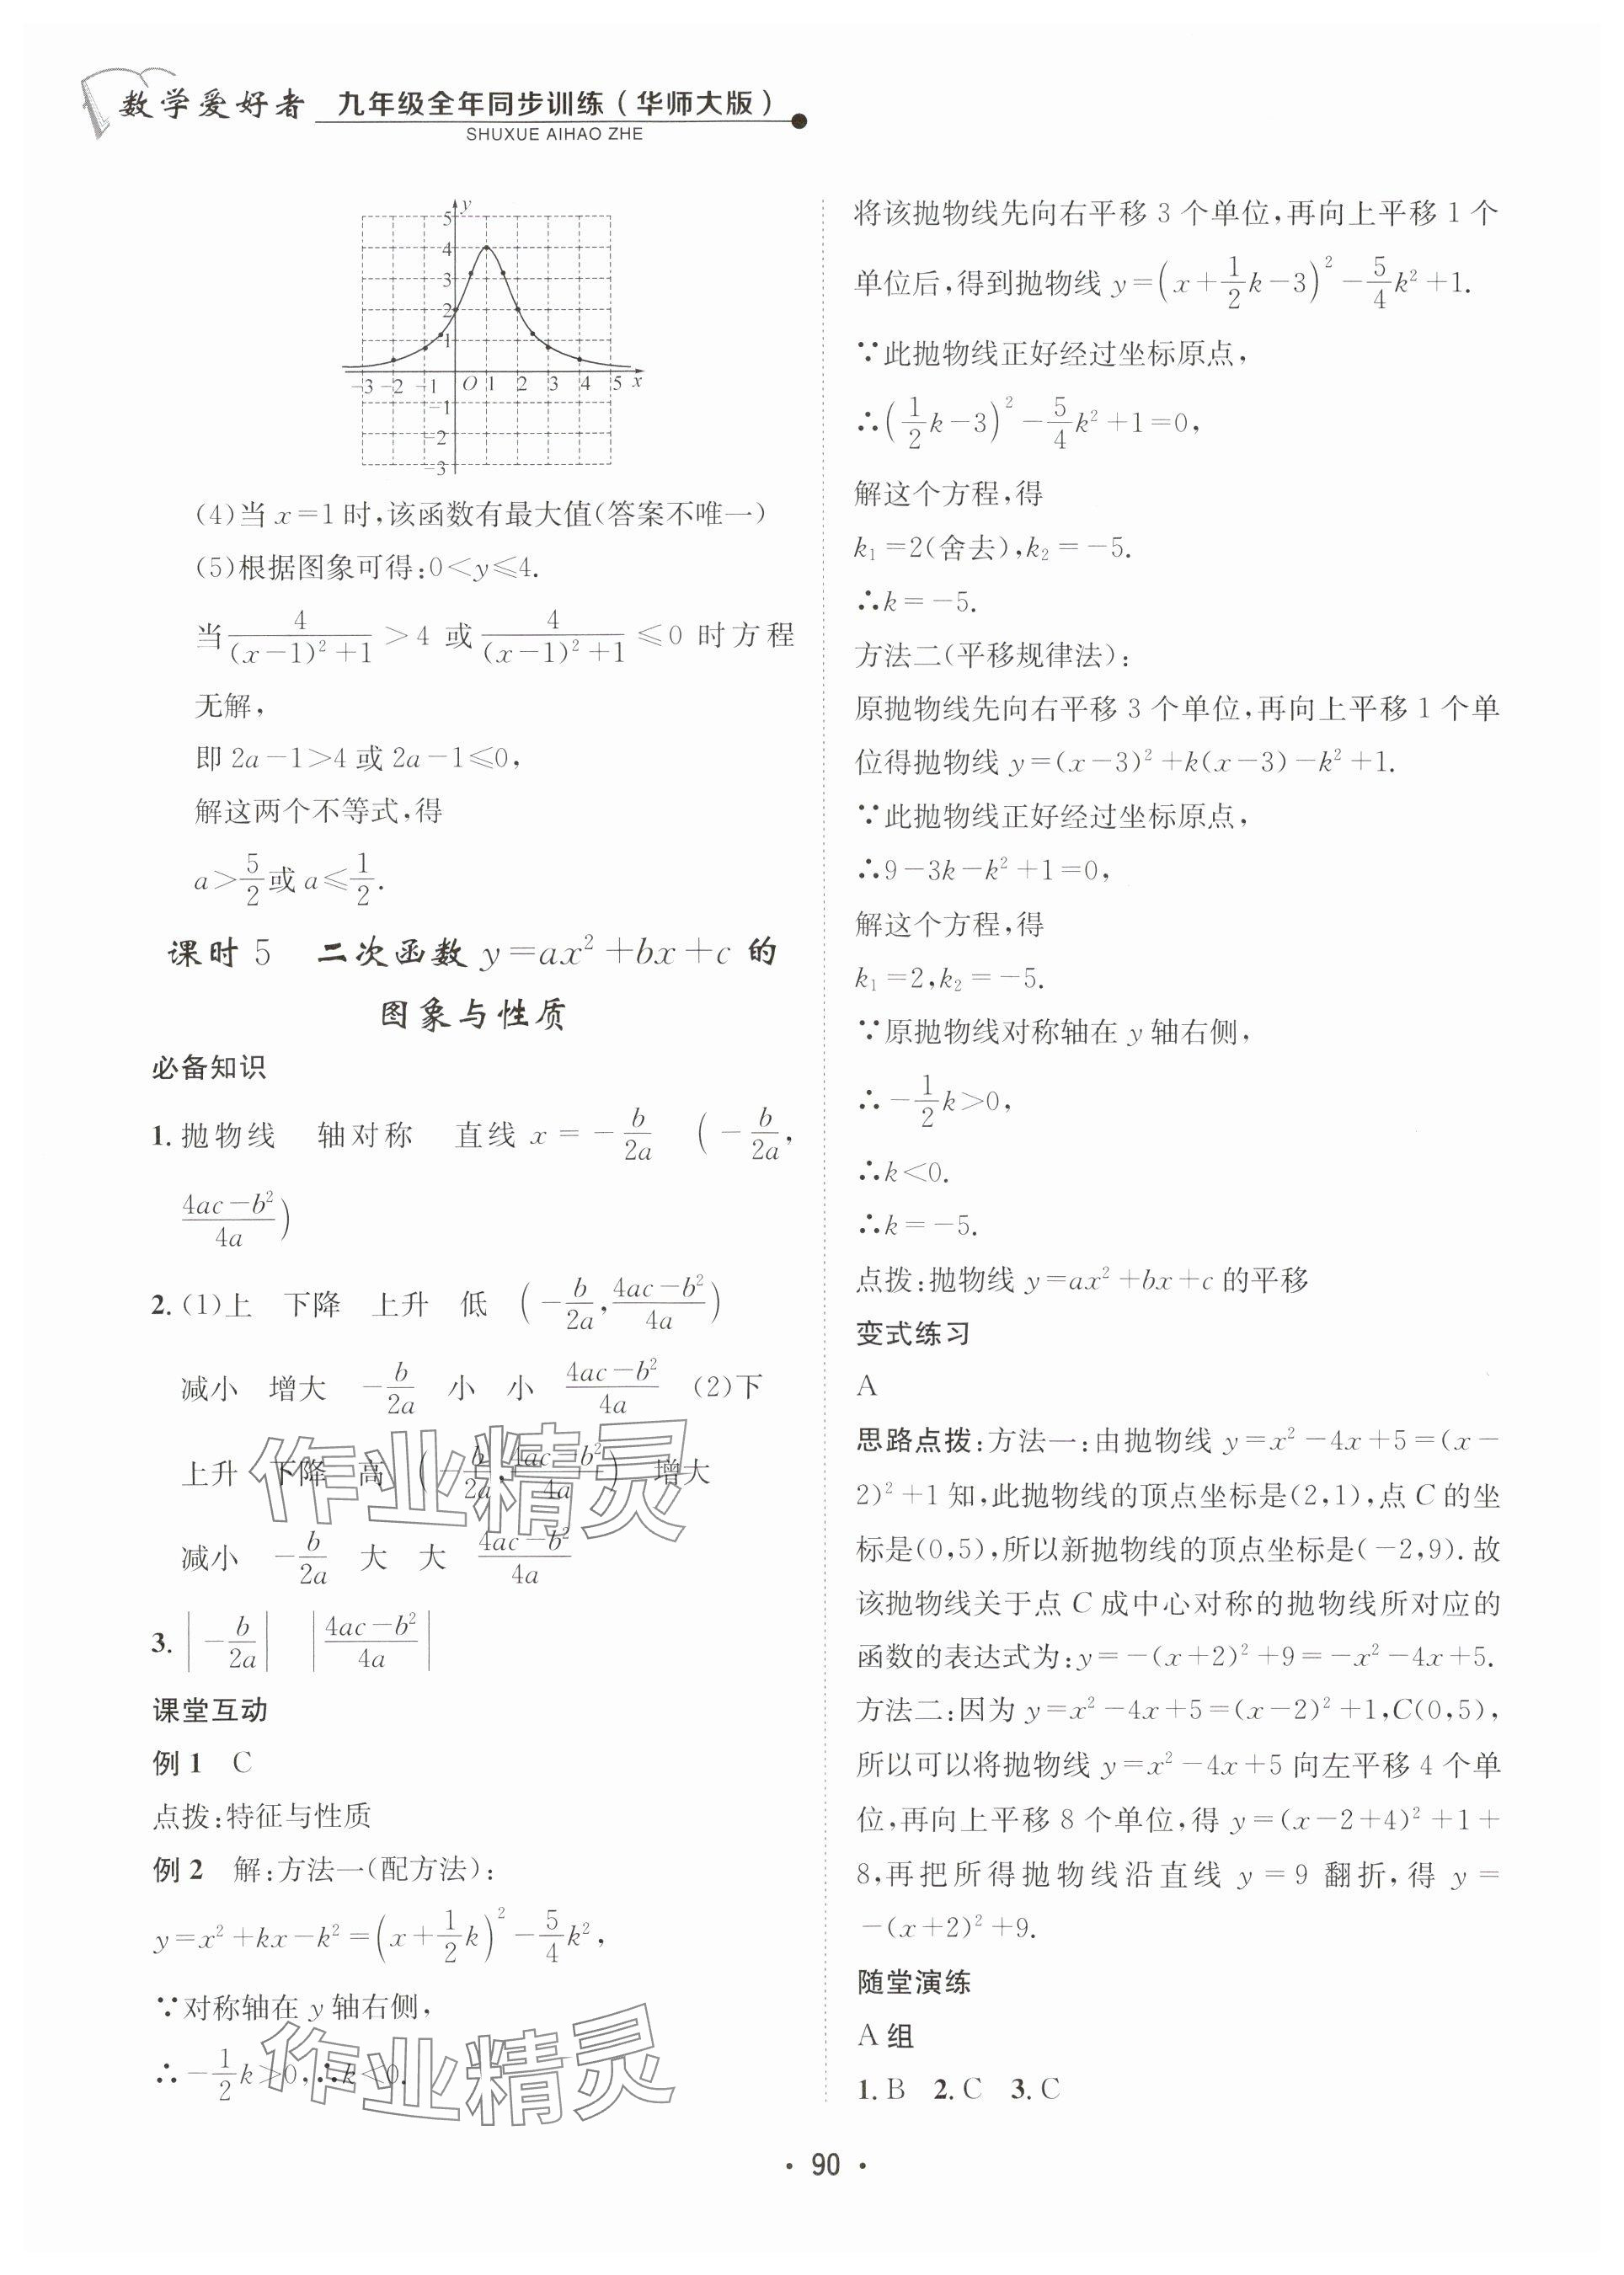 数学爱好者 九年级全年同步训练(华师大版)
SHUXUE AIHAO ZHE
y
5
4
3
2
1
-3 -2 -1 O 1 2 3 4 5 x
-1
-2
-3
(4)当 x=1 时,该函数有最大值(答案不唯一)
(5)根据图象可得:0<y≤4.
当 4/((x-1)²+1) >4 或 4/((x-1)²+1) ≤0 时方程
无解,
即 2a-1>4 或 2a-1≤0,
解这两个不等式,得
a>5/2 或 a≤1/2.
课时 5 二次函数 y=ax²+bx+c 的
图象与性质
必备知识
1. 抛物线 轴对称 直线 x=-b/2a (-b/2a,
(4ac-b²)/4a)
2. (1)上 下降 上升 低 (-b/2a, (4ac-b²)/4a)
减小 增大 -b/2a 小 小 (4ac-b²)/4a (2)下
上升 下降 高 (-b/2a, (4ac-b²)/4a) 增大
减小 -b/2a 大 大 (4ac-b²)/4a
3. |-b/2a| |(4ac-b²)/4a|
课堂互动
例 1 C
点拨:特征与性质
例 2 解:方法一(配方法):
y=x²+kx-k²=(x+1/2k)²-5/4k²,
∵对称轴在 y 轴右侧,
∴-1/2k>0,∴k<0.
将该抛物线先向右平移 3 个单位,再向上平移 1 个
单位后,得到抛物线 y=(x+1/2k-3)²-5/4k²+1.
∵此抛物线正好经过坐标原点,
∴(1/2k-3)²-5/4k²+1=0,
解这个方程,得
k₁=2(舍去),k₂=-5.
∴k=-5.
方法二(平移规律法):
原抛物线先向右平移 3 个单位,再向上平移 1 个单
位得抛物线 y=(x-3)²+k(x-3)-k²+1.
∵此抛物线正好经过坐标原点,
∴9-3k-k²+1=0,
解这个方程,得
k₁=2,k₂=-5.
∵原抛物线对称轴在 y 轴右侧,
∴-1/2k>0,
∴k<0.
∴k=-5.
点拨:抛物线 y=ax²+bx+c 的平移
变式练习
A
思路点拨:方法一:由抛物线 y=x²-4x+5=(x-
2)²+1 知,此抛物线的顶点坐标是(2,1),点 C 的坐
标是(0,5),所以新抛物线的顶点坐标是(-2,9).故
该抛物线关于点 C 成中心对称的抛物线所对应的
函数的表达式为:y=-(x+2)²+9=-x²-4x+5.
方法二:因为 y=x²-4x+5=(x-2)²+1,C(0,5),
所以可以将抛物线 y=x²-4x+5 向左平移 4 个单
位,再向上平移 8 个单位,得 y=(x-2+4)²+1+
8,再把所得抛物线沿直线 y=9 翻折,得 y=
-(x+2)²+9.
随堂演练
A 组
1. B 2. C 3. C
作业精灵
作业精灵
· 90 ·